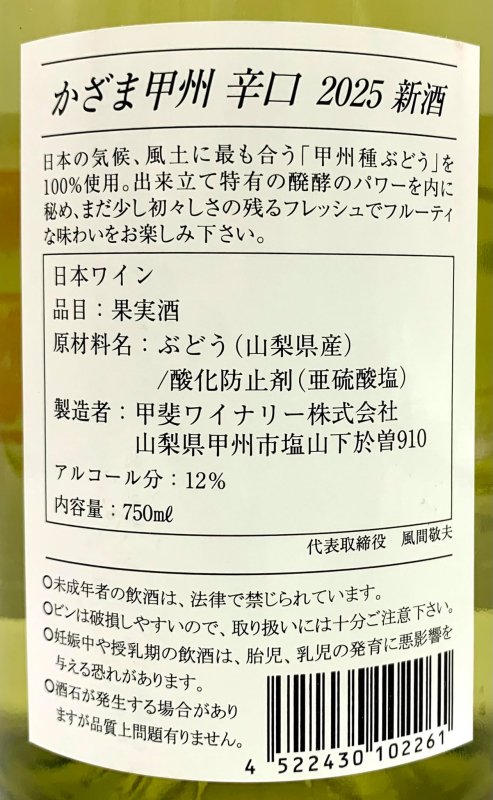 かざま甲州 辛口 2025 新酒
日本の気候、風土に最も合う「甲州種ぶどう」を
100%使用。出来立て特有の醗酵のパワーを内に
秘め、まだ少し初々しさの残るフレッシュでフルーティ
な味わいをお楽しみ下さい。
日本ワイン
品目：果実酒
原材料名：ぶどう（山梨県産）
/酸化防止剤（亜硫酸塩）
製造者：甲斐ワイナリー株式会社
山梨県甲州市塩山下於曽910
アルコール分：12%
内容量：750mℓ
代表取締役 風間敬夫
○未成年者の飲酒は、法律で禁じられています。
○ビンは破損しやすいので、取り扱いには十分ご注意下さい。
○妊娠中や授乳期の飲酒は、胎児、乳児の発育に悪影響を
与える恐れがあります。
○酒石が発生する場合があり
ますが品質上問題有りません。
4 522430 102261